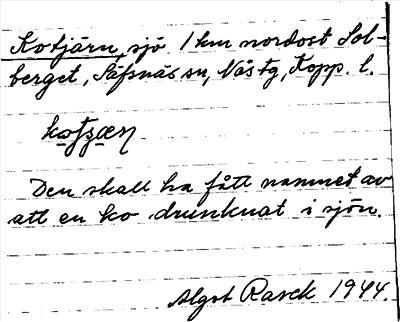 Kotjärn, sjö 1 km nordost Sol-
berget, Säfsnäs sn, Nås tg, Kopp. l.
Den skall ha fått namnet av
att en ko drunknat i sjön.
Algot Rasck 1944.